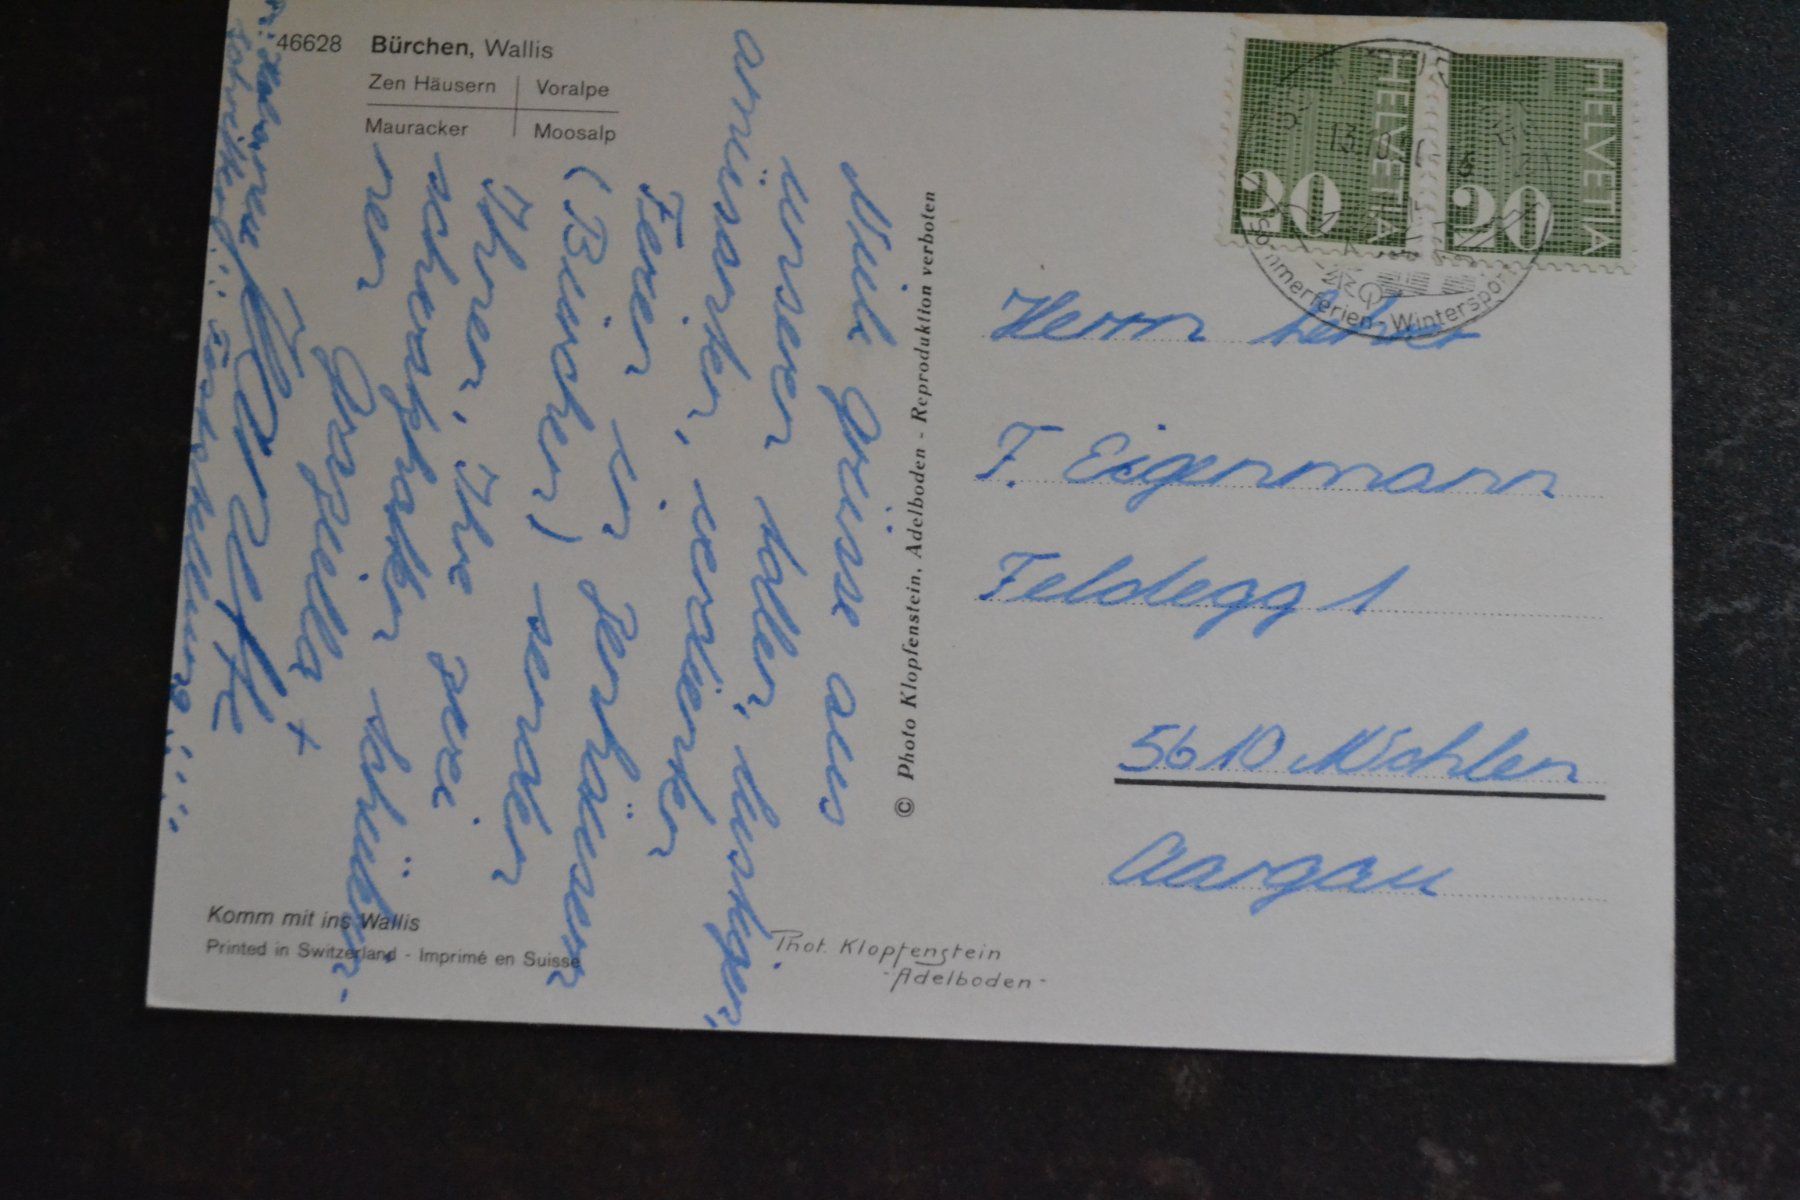 46628 Bürchen, Wallis
Zen Häusern Voralpe
Mauracker Moosalp
Viele Grüsse aus
unseren tollen, lustigen,
amüsanten, verdienten
Ferien in Zenhäusern
(Bürchen) senden
Ihnen, Ihre zwei
scherzhaften Schüler-
nen
Graziella +
Komm mit ins Wallis
Printed in Switzerland - Imprimé en Suisse
© Photo Klopfenstein, Adelboden - Reproduktion verboten
Phot. Klopfenstein
-Adelboden-
HELVETIA 20
HELVETIA 20
13.10.
Sommerferien - Wintersport
Herrn Lehrer
F. Eigenmann
Feldegg 1
5610 Wohlen
Aargau